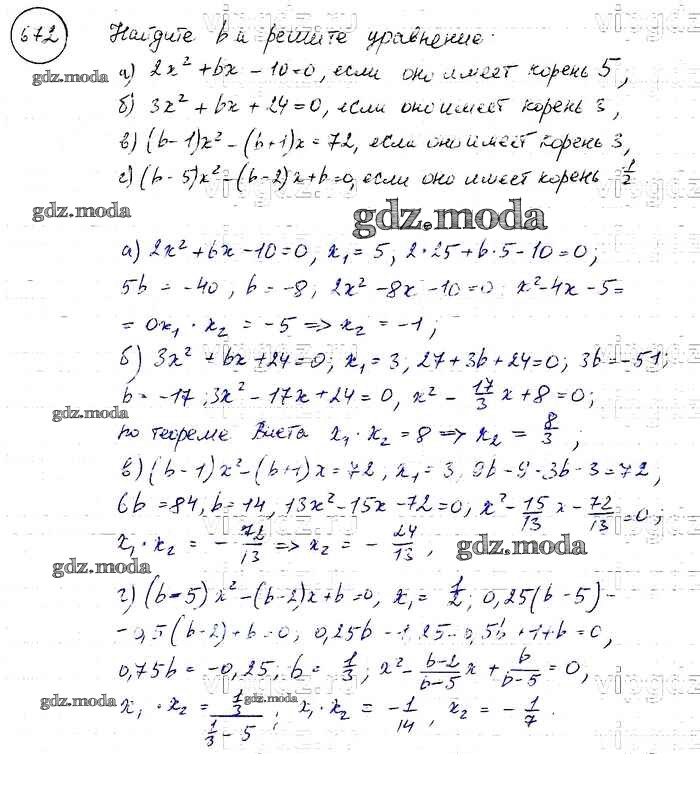 672 Найдите b и решите уравнение.
а) 2x² + bx - 10 = 0, если оно имеет корень 5,
gdz.moda
б) 3x² + bx + 24 = 0, если оно имеет корень 3,
в) (b-1)x² - (b+1)x = 72, если оно имеет корень 3,
г) (b-5)x² - (b-2)x + b = 0, если оно имеет корень 1/2
gdz.moda
gdz.moda
а) 2x² + bx - 10 = 0, x₁ = 5, 2·25 + b·5 - 10 = 0;
5b = -40, b = -8; 2x² - 8x - 10 = 0 x² - 4x - 5 =
= 0 x₁ · x₂ = -5 => x₂ = -1;
б) 3x² + bx + 24 = 0; x₁ = 3, 27 + 3b + 24 = 0; 3b = -51;
b = -17; 3x² - 17x + 24 = 0, x² - 17/3 x + 8 = 0;
gdz.moda
по теореме Виета x₁ · x₂ = 8 => x₂ = 8/3;
в) (b-1)x² - (b+1)x = 72, x₁ = 3, 9b - 9 - 3b - 3 = 72,
6b = 84, b = 14, 13x² - 15x - 72 = 0; x² - 15/13 x - 72/13 = 0;
x₁ · x₂ = - 72/13 => x₂ = - 24/13,
gdz.moda
gdz.moda
г) (b-5)x² - (b-2)x + b = 0, x₁ = 1/2; 0,25(b-5) -
- 0,5(b-2) + b = 0; 0,25b - 1,25 - 0,5b + 1 + b = 0,
0,75b = -0,25, b = 1/3; x² - b-2/b-5 x + b/b-5 = 0,
gdz.moda
gdz.moda
x₁ · x₂ = 1/3 / 1/3 - 5; x₁ · x₂ = - 1/14, x₂ = - 1/7.